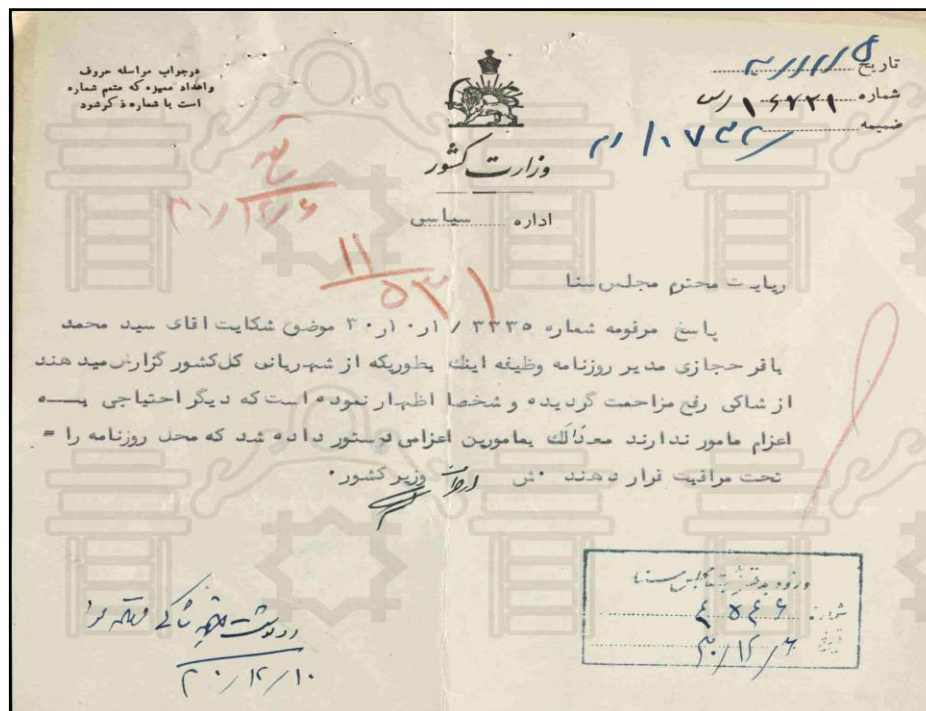 درجواب مراسله حروف
واعداد ممیزه که متمم شماره
است با شماره ذکرشود
تاریخ ۳۰/۱۲/۵
شماره ۱۶۷۲۱ /س
ضمیمه
وزارت کشور
اداره سیاسی
۳۰/۱۲/۶
۱۱
۵۳۱
ریاست محترم مجلس سنا
پاسخ مرقومه شماره ۳۳۳۵ / ۱ر۱۰ر۳۰ موضوع شکایت اقای سید محمد
باقر حجازی مدیر روزنامه وظیفه اینك بطوریکه از شهربانی کل کشور گزارش میدهند
از شاکی رفع مزاحمت گردیده و شخصا اظهار نموده است که دیگر احتیاجی به
اعزام مامور ندارند معذالك بمامورین اعزامی دستور داده شد که محل روزنامه را =
تحت مراقبت قرار دهند ۰ش وزیر کشور۰
ورود به دفتر ثبت مجلس سنا
شماره: ٤٥٤٦
تاریخ ۳۰/۱۲/۶
۳۰/۱۲/۱۰